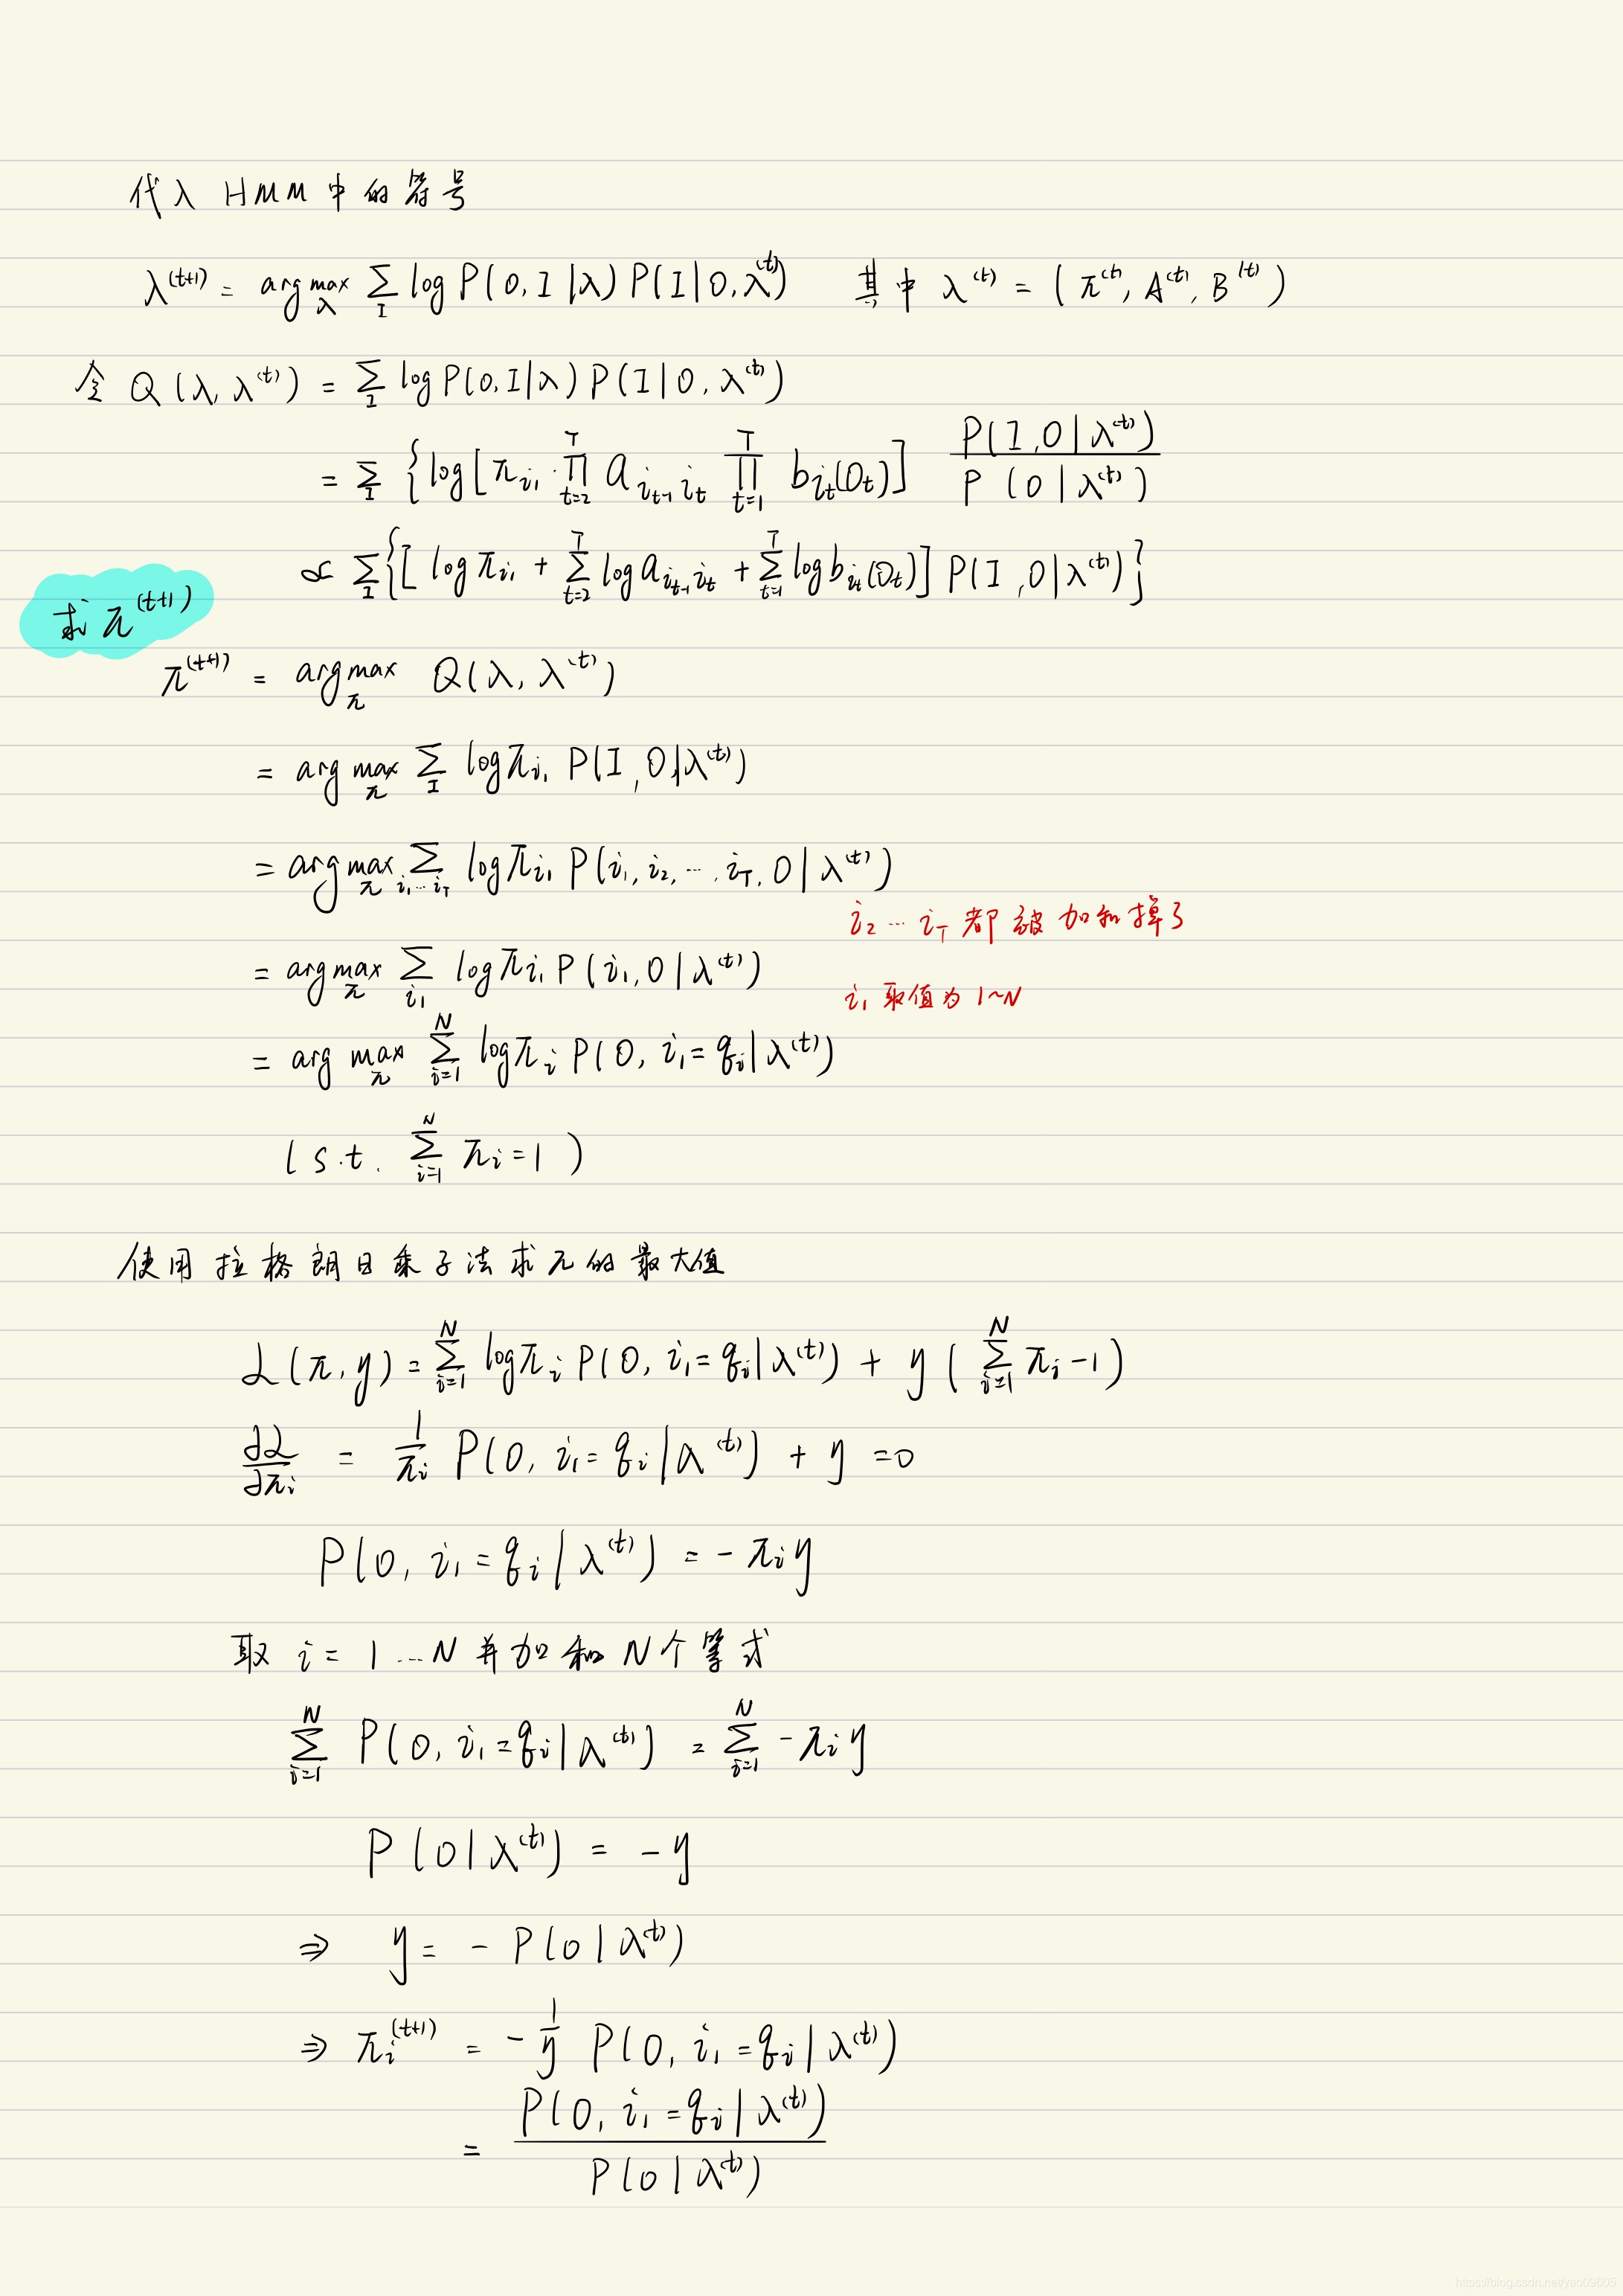 代入 HMM 中的符号
λ^(t+1) = arg max_λ Σ_I log P(O, I | λ) P(I | O, λ^(t)) 其中 λ^(t) = (π^(t), A^(t), B^(t))
令 Q(λ, λ^(t)) = Σ_I log P(O, I | λ) P(I | O, λ^(t))
= Σ_I { log [ π_{i_1} · ∏_{t=2}^T a_{i_{t-1} i_t} ∏_{t=1}^T b_{i_t}(O_t) ] P(I, O | λ^(t)) / P(O | λ^(t))
∝ Σ_I { [ log π_{i_1} + Σ_{t=2}^T log a_{i_{t-1} i_t} + Σ_{t=1}^T log b_{i_t}(O_t) ] P(I, O | λ^(t)) }
求 π^(t+1)
π^(t+1) = arg max_π Q(λ, λ^(t))
= arg max_π Σ_I log π_{i_1} P(I, O | λ^(t))
= arg max_π Σ_{i_1 ... i_T} log π_{i_1} P(i_1, i_2, ..., i_T, O | λ^(t))
i_2 ... i_T 都被加和掉了
= arg max_π Σ_{i_1} log π_{i_1} P(i_1, O | λ^(t))
i_1 取值为 1~N
= arg max_π Σ_{i=1}^N log π_i P(O, i_1 = q_i | λ^(t))
(s.t. Σ_{i=1}^N π_i = 1)
使用拉格朗日乘子法求π的最大值
L(π, y) = Σ_{i=1}^N log π_i P(O, i_1 = q_i | λ^(t)) + y (Σ_{i=1}^N π_i - 1)
∂L/∂π_i = 1/π_i P(O, i_1 = q_i | λ^(t)) + y = 0
P(O, i_1 = q_i | λ^(t)) = - π_i y
取 i = 1 ... N 并加和 N 个等式
Σ_{i=1}^N P(O, i_1 = q_i | λ^(t)) = Σ_{i=1}^N - π_i y
P(O | λ^(t)) = - y
⇒ y = - P(O | λ^(t))
⇒ π_i^(t+1) = - 1/y P(O, i_1 = q_i | λ^(t))
= P(O, i_1 = q_i | λ^(t)) / P(O | λ^(t))
https://blog.csdn.net/yao09605